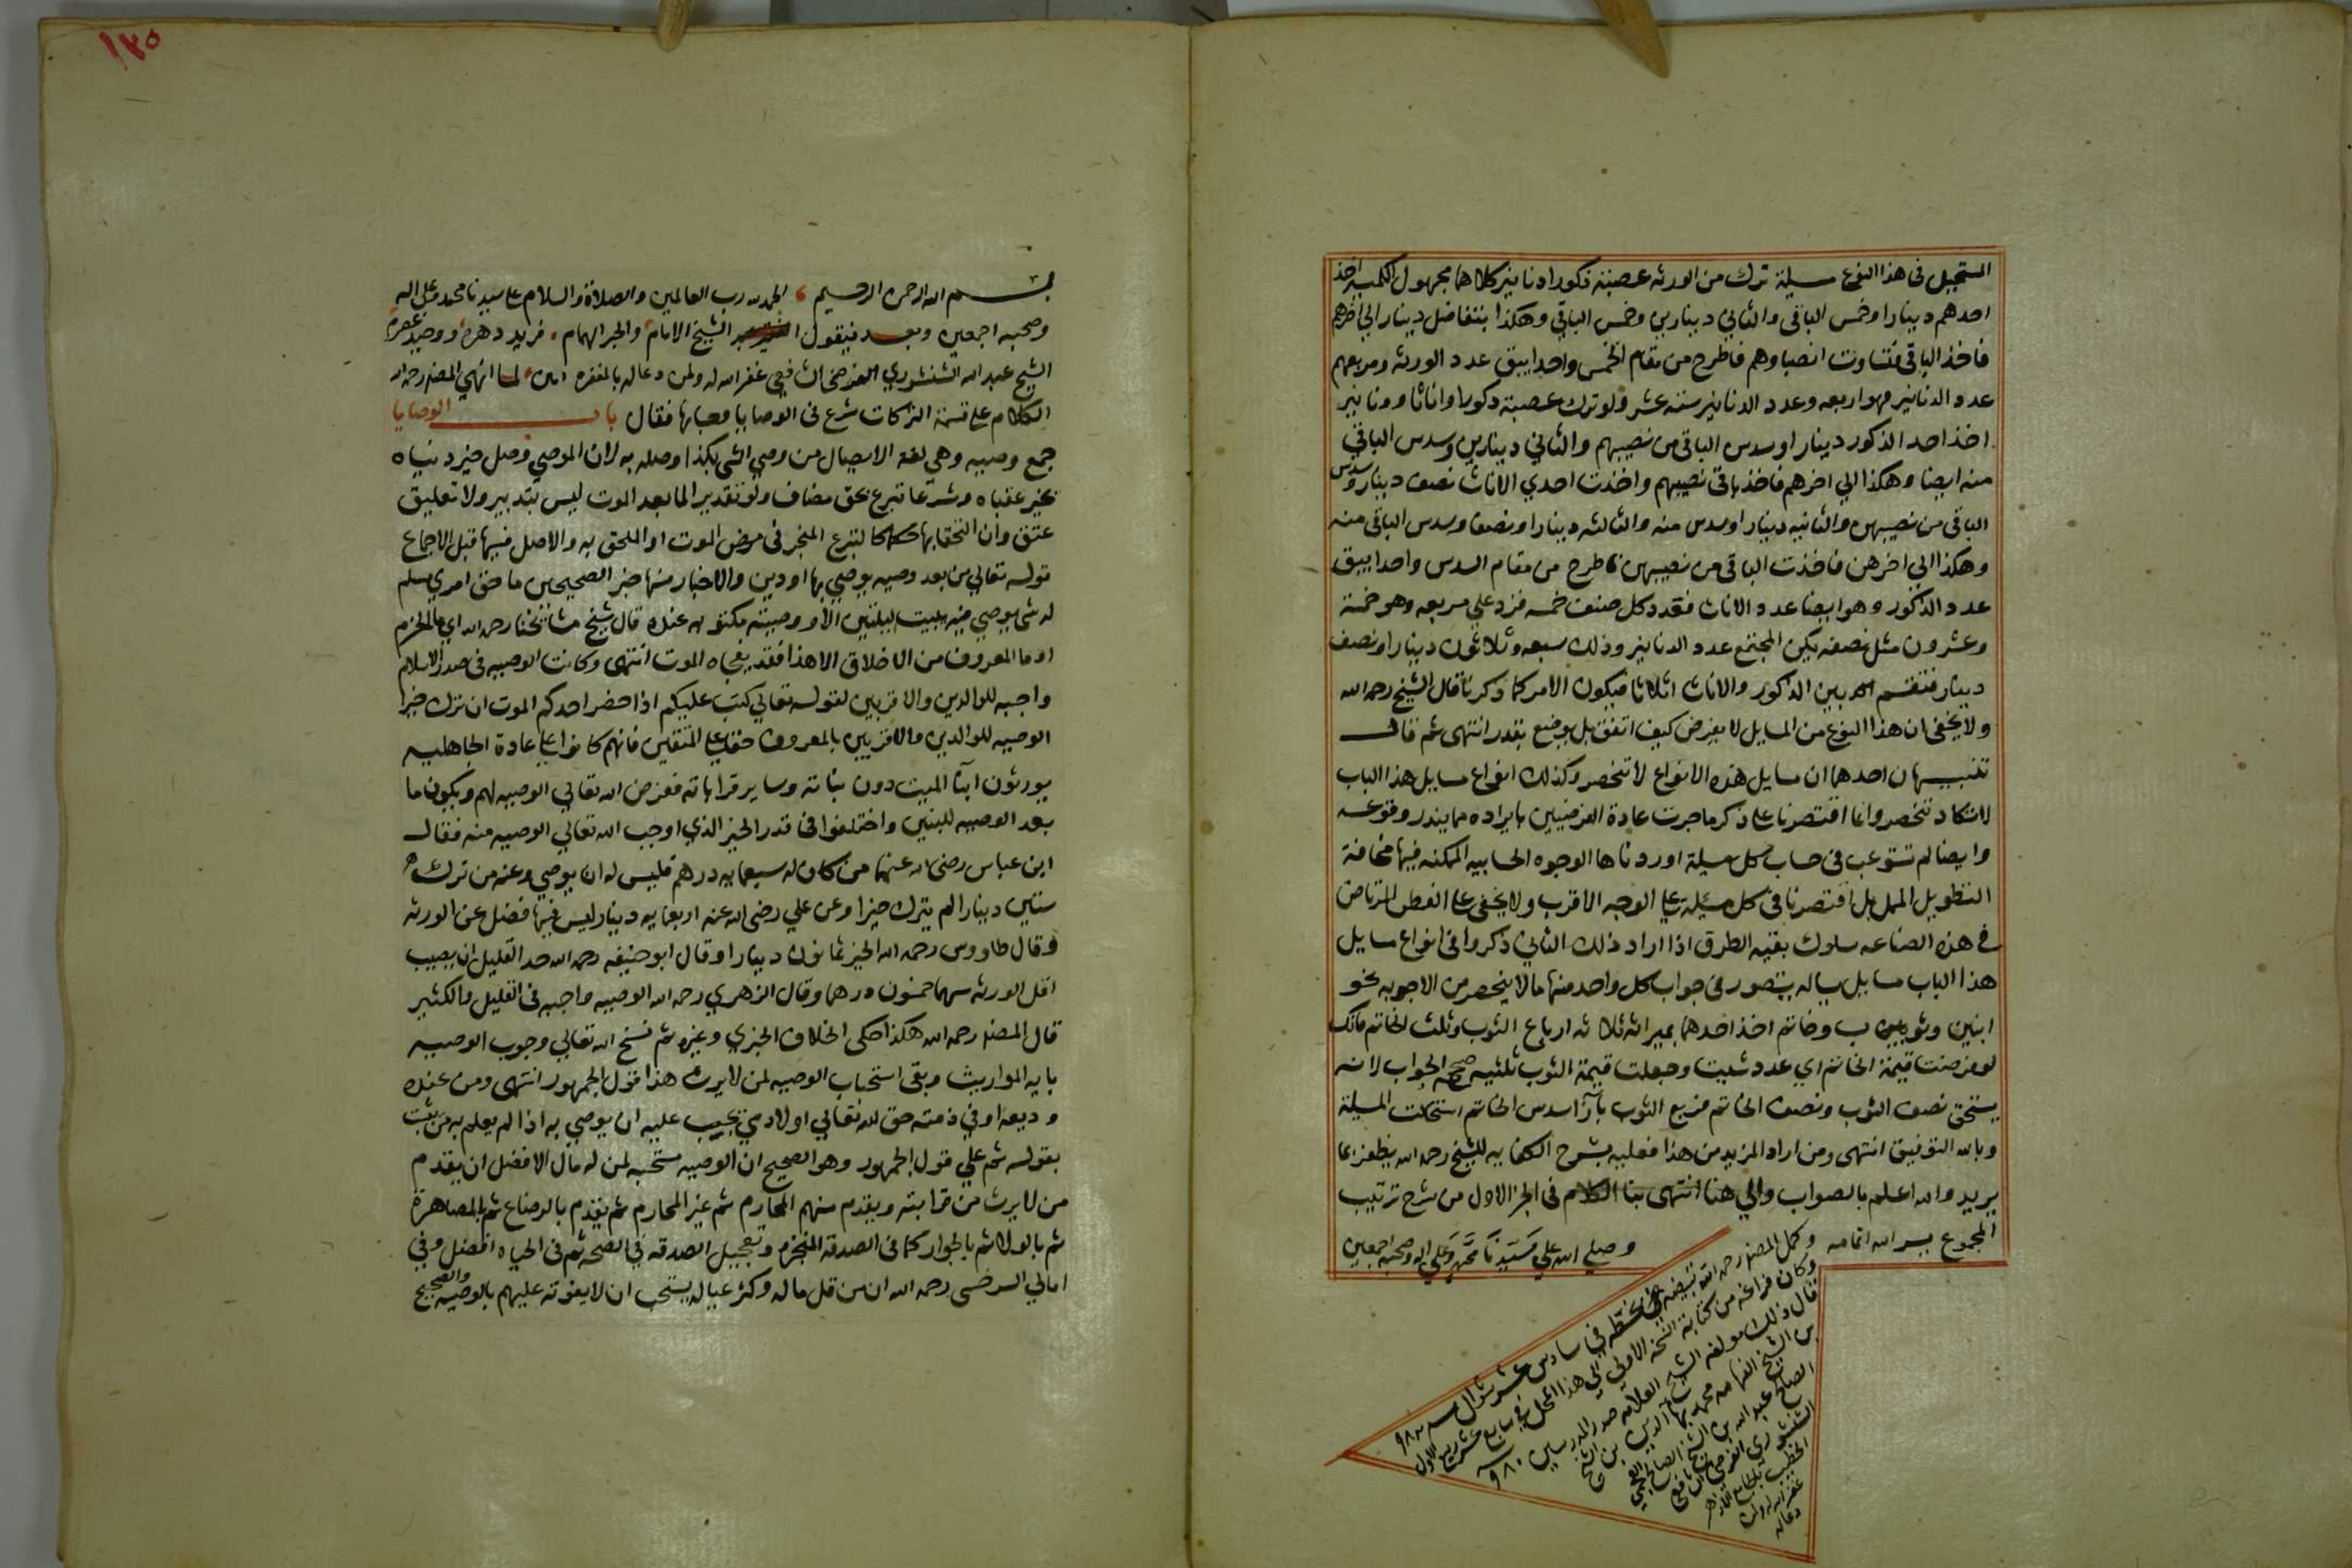 المستحيل في هذا النوع مسيلة ترك من الورثه عصبته ذكورا ودنانير كلاهما مجهول الكميه اخذ
احدهم دينارا وخمس الباقي والثاني دينارين وخمس الباقي وهكذا بتفاضل دينار الي اخرهم
فاخذ الباقي فتساوت انصباوهم فاطرح من مقام الخمس واحدا يبق عدد الورثه ومربعهم
عدد الدنانير فهو اربعه وعدد الدنانير سته عشر ولو ترك عصبة ذكورا واناثا ودنانير
اخذ احد الذكور دينارا وسدس الباقي من نصيبهم والثاني دينارين وسدس الباقي
منه ايضا وهكذا الي اخرهم فاخذ باقي نصيبهم واخذت احدي الاناث نصف دينار وسدس
الباقي من نصيبهن والثانيه دينارا وسدس منه والثالثه دينارا ونصفا وسدس الباقي منه
وهكذا الي اخرهن فاخذت الباقي من نصيبهن فاطرح من مقام السدس واحدا يبق
عدد الذكور وهو ايضا عدد الاناث فعدد كل صنف خمسه فزد علي مربعه وهو خمسة
وعشرون مثل نصفه يكن المجتمع عدد الدنانير وذلك سبعه وثلاثون دينارا ونصف
دينار فتقسم بين الذكور والاناث اثلاثا فيكون الامر كما ذكرنا قال الشيخ رحمه الله
ولا يخفى ان هذا النوع من المسايل لا يفرض كيف اتفق بل بوضع بقدر انتهى ثم قال
تنبيهان احدهما ان مسايل هذه الانواع لا تنحصر وكذلك انواع مسايل هذا الباب
لا تكاد تنحصر وانما اقتصرنا على ذكر ما جرت عادة الفرضيين بايراده مما يندر وقوعه
وايضا لم تستوعب في حساب كل مسيلة اوردناها الوجوه الحسابيه الممكنه فيها مخافة
التطويل الممل بل اقتصرنا في كل مسئلة على الوجه الاقرب ولا يخفى على الفطن المرتاض
في هذه الصناعه سلوك بقيه الطرق اذا اراد ذلك الثاني ذكروا في انواع مسايل
هذا الباب مسايل سياله يتصور في جواب كل واحد منها ما لا ينحصر من الاجوبه نحو
ابنين وثوبين وخاتم اخذ احدهما بميراثه ثلاثه ارباع الثوب وثلث الخاتم فانك
لو فرضت قيمة الخاتم اي عدد شيت وجعلت قيمة الثوب ثلثيه صح الجواب لانه
يستحق نصف الثوب ونصف الخاتم فربع الثوب بازاء سدس الخاتم استحالت المسيلة
وبالله التوفيق انتهى ومن اراد المزيد من هذا فعليه بشرح الكفايه للشيخ رحمه الله يظفر بما
يريد والله اعلم بالصواب والي هنا انتهى بنا الكلام في الجز الاول من شرح ترتيب
المجموع يسر الله اتمامه وصلي الله علي سيدنا محمد وعلي اله وصحبه اجمعين
وكمل المصنف رحمه الله تبييضه بخطه في سادس عشر شوال سنه ٩٨٢
وكان فراغه من كتابة النسخه الاولي الي هذا المحل في سابع عشر ربيع الاول
قال ذلك مولفه الشيخ العلامه صدر المدرسين ٩٨٠
بن الشيخ محمد بها الدين بن الشيخ
الصالح عبد الله بن الشيخ الصالح
الشنشوري الفرضي الشافعي
الخطيب بالجامع الازهر
غفر الله له ولمن
دعا له
١٣٥
بسم الله الرحمن الرحيم الحمد لله رب العالمين والصلاة والسلام على سيدنا محمد وعلى اله
وصحبه اجمعين وبعد فيقول الشيخ الامام والحبر الهمام فريد دهره ووحيد عصره
الشيخ عبد الله الشنشوري الفرضي الشافعي غفر الله له ولمن دعا له بالمغفره امين لما انهي المصنف رحمه الله
الكلام على قسمة التركات شرع في الوصايا وحسابها فقال باب الوصايا
جمع وصيه وهي لغة الايصال من وصي الشي بكذا وصله به لان الموصي وصل خير دنياه
بخير عقباه وشرعا تبرع بحق مضاف ولو تقديرا لما بعد الموت ليس بتدبير ولا تعليق
عتق وان التحقا بها حكما كالتبرع المنجز في مرض الموت او الملحق به والاصل فيها قبل الاجماع
قوله تعالي من بعد وصيه يوصي بها او دين والاخبار منها خبر الصحيحين ما حق امري مسلم
له شي يوصي فيه يبيت ليلتين الا ووصيته مكتوبه عنده قال شيخ مشائخنا رحمه الله اي ما الحزم
او ما المعروف من الاخلاق الا هذا فقد يفجاه الموت انتهى وكانت الوصيه في صدر الاسلام
واجبه للوالدين والاقربين لقوله تعالي كتب عليكم اذا حضر احدكم الموت ان ترك خيرا
الوصيه للوالدين والاقربين بالمعروف حقا على المتقين فانهم كانوا على عادة الجاهليه
يورثون ابنا الميت دون بناته وساير قراباته ففرض الله تعالي الوصيه لهم ويكون ما
بعد الوصيه للبنين واختلفوا في قدر الخير الذي اوجب الله تعالي الوصيه منه فقال
ابن عباس رضى الله عنهما من كان له سبعمايه درهم فليس له ان يوصي وعنه من ترك
ستين دينارا لم يترك خيرا وعن علي رضى الله عنه اربعمايه دينار ليس فيها فضل عن الورثه
وقال طاووس رحمه الله الخير ثمانون دينارا وقال ابو حنيفه رحمه الله حد القليل ان يصيب
اقل الورثه سهما خمسون درهما وقال الزهري رحمه الله الوصيه واجبه في القليل والكثير
قال المصنف رحمه الله هكذا حكى الخلاف الخبري وغيره ثم نسخ الله تعالي وجوب الوصيه
بايه المواريث وبقى استحباب الوصيه لمن لا يرث هذا قول الجمهور انتهى ومن عنده
وديعه او في ذمته حق لله تعالي او لادمي يجب عليه ان يوصي به اذا لم يعلم به من يثبت
بقوله ثم علي قول الجمهور وهو الصحيح ان الوصيه مستحبه لمن له مال الافضل ان يقدم
من لا يرث من قرابته ويقدم منهم المحارم ثم غير المحارم ثم يقدم بالرضاع ثم بالمصاهرة
ثم بالولا ثم بالجوار كما في الصدقه المنجزه وتعجيل الصدقه في الصحه ثم في الحياه افضل وفي
امالي السرخسي رحمه الله ان من قل ماله وكثر عياله يستحب ان لا يفوته عليهم بالوصيه والصحيح